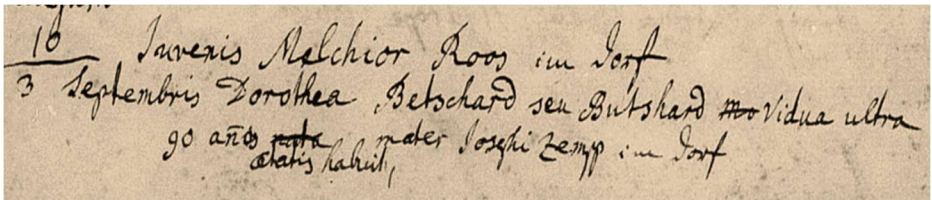 10 Juvenis Melchior Roos im Dorf
3 Septembris Dorothea Betschard seu Butshard mo Vidua ultra
90 años nata mater Josephi Zemp im Dorf
ætatis habuit,